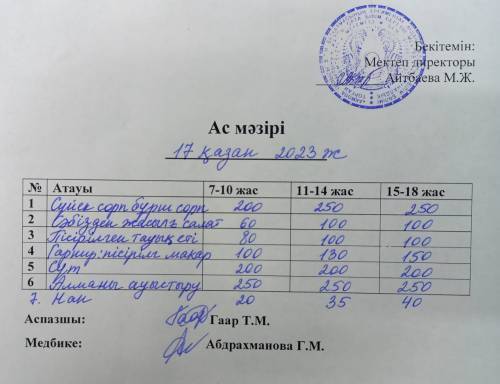 Бекітемін:
Мектеп директоры
Айтбаева М.Ж.
Ас мәзірі
17 қазан 2023 ж
№ Атауы 7-10 жас 11-14 жас 15-18 жас
1 Сүйек сорп бұрш сорп 200 250 250
2 Сәбізден жасылғ салат 60 100 100
3 Пісірілген тауық еті 80 100 100
4 Гарнир: пісірілг макар 100 130 150
5 Сүт 200 200 200
6 Алманы ауыстыру 250 250 250
7. Нан 20 35 40
Аспазшы: Гаар Т.М.
Медбике: Абдрахманова Г.М.